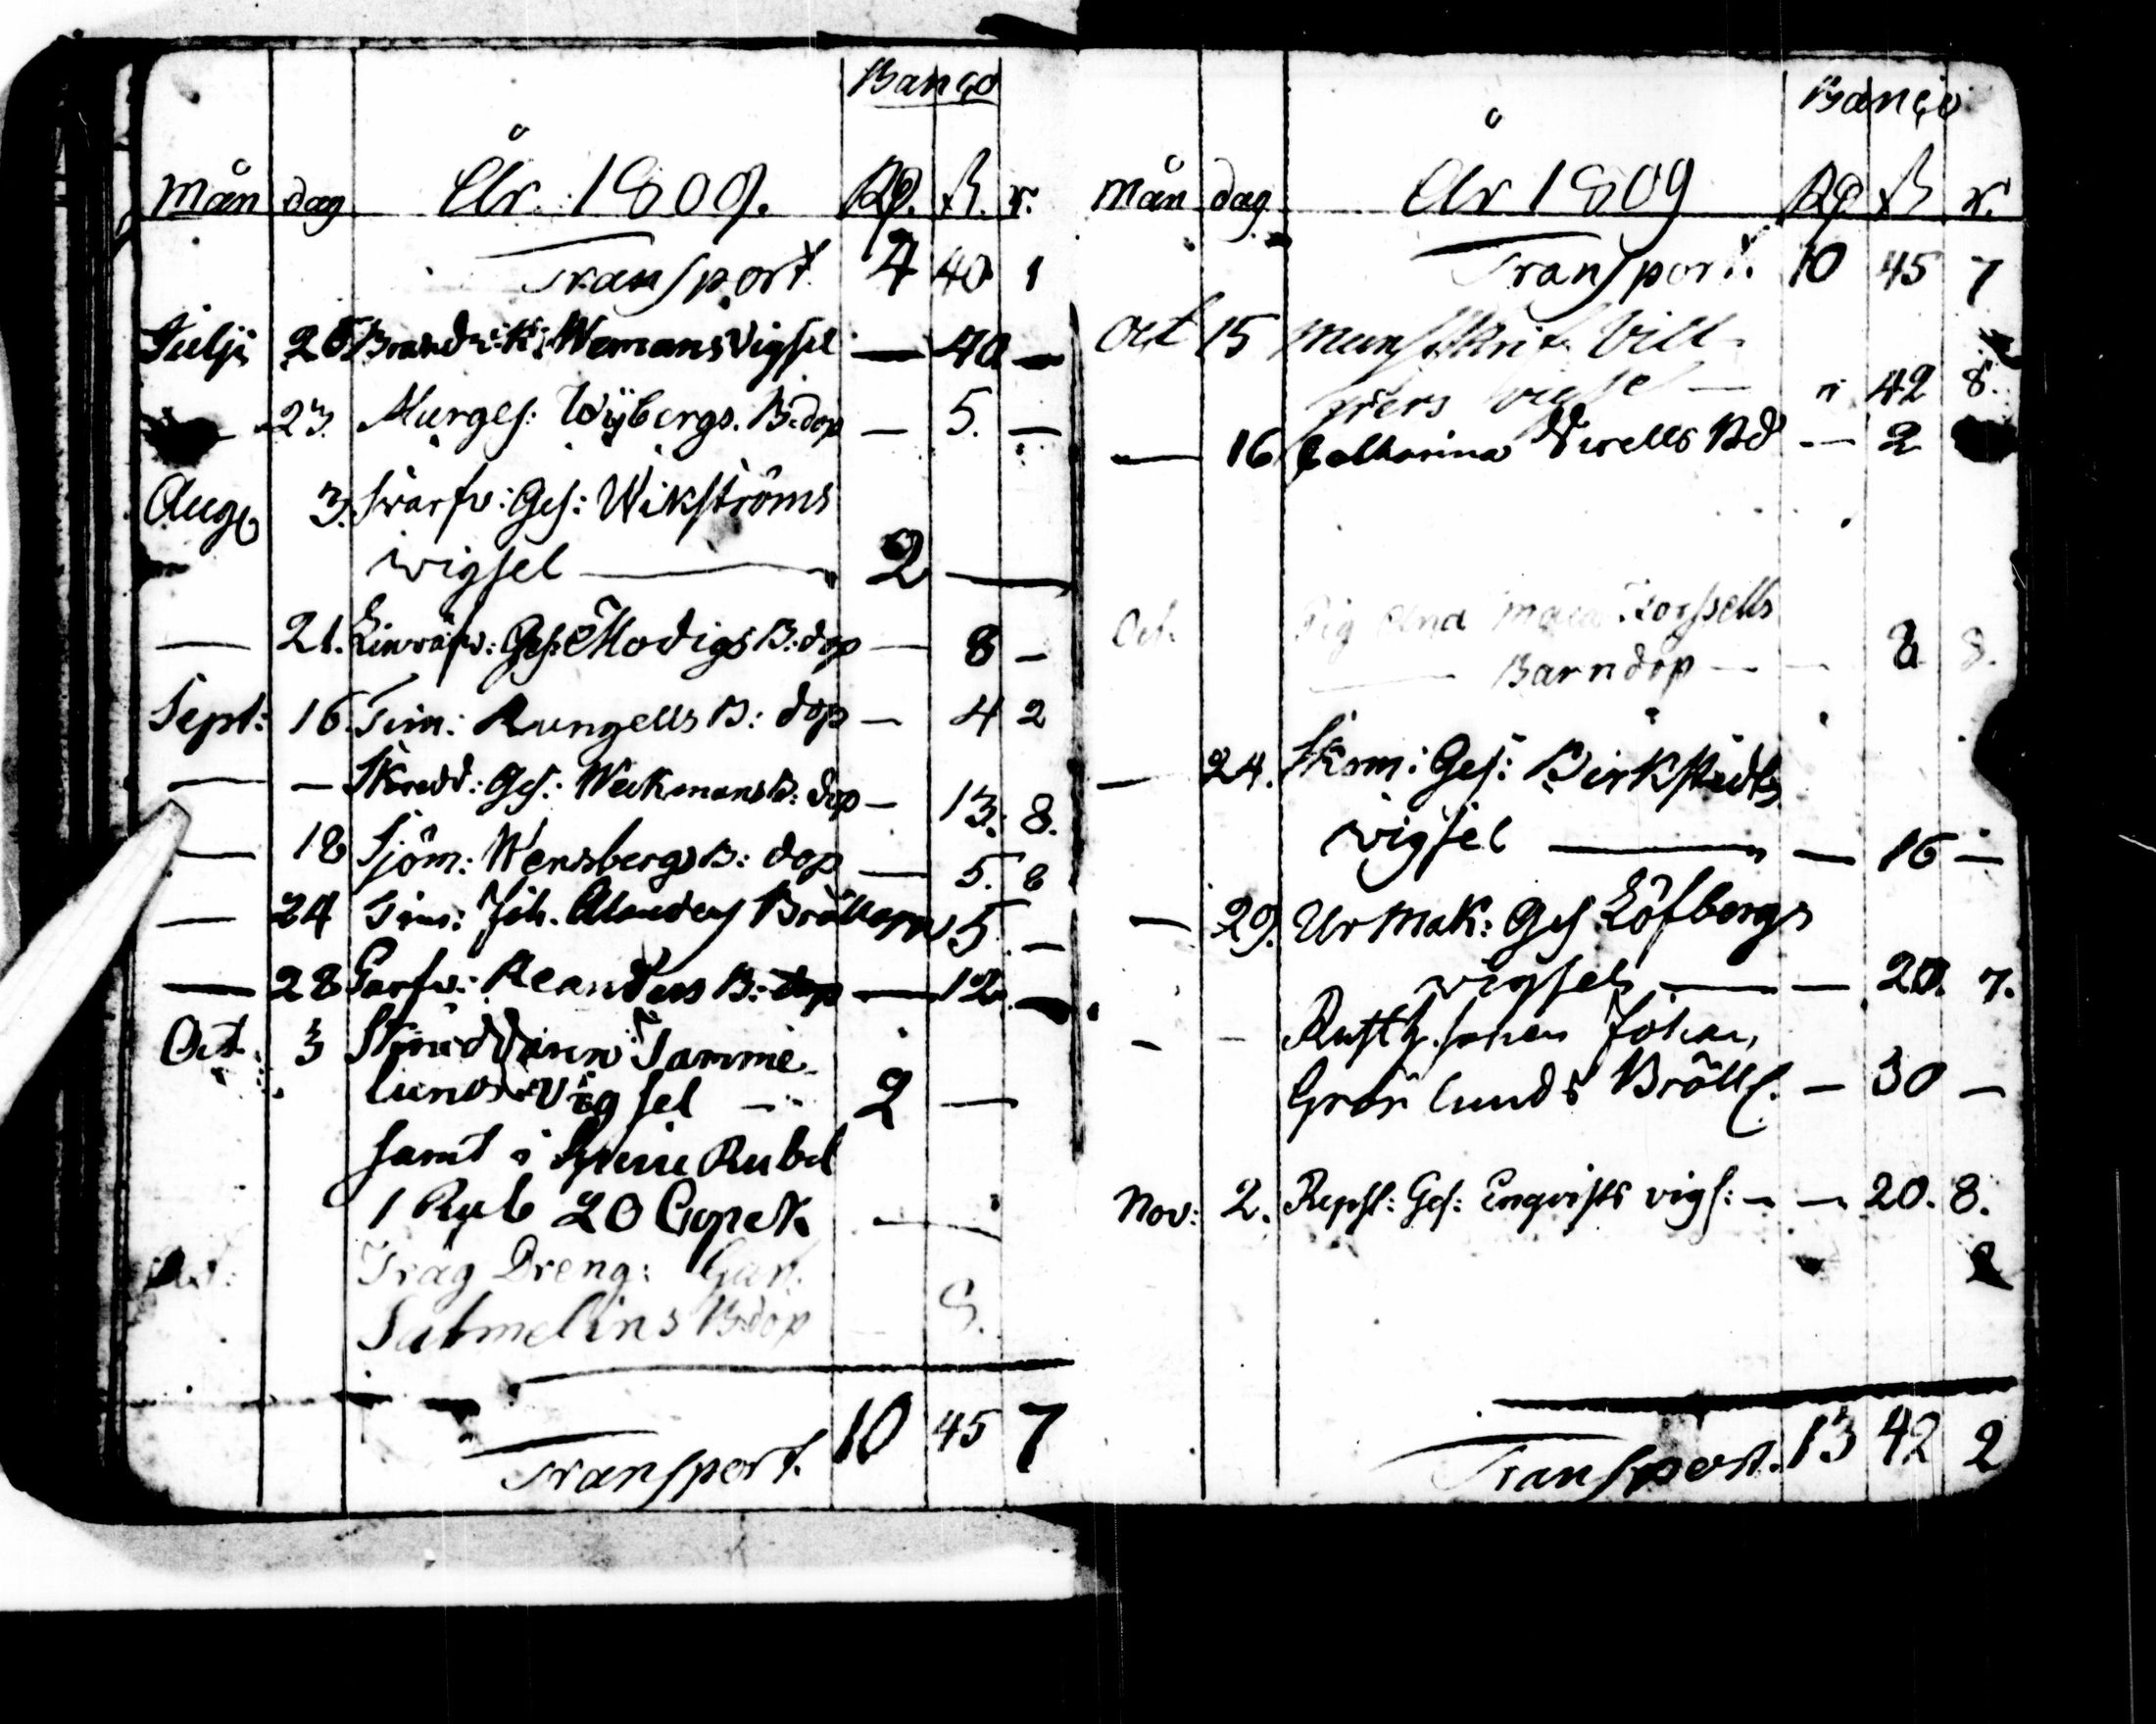 Banco
Mån dag År 1809. Rd. ß. r.
Transport 4 40 1
Julji 20 Brandv: K: Wemans Vigsel — 40 —
23. Murges: Wijbergs. B:dop — 5. —
Aug 3. Svarfv: Ges: Wikströms
wigsel — 2 —
— 21. Linväfv: Ges: Modigs B:dop — 8 —
Sept: 16. Tim: Rungells B: dop — 4 2
— — Skredd: Ges: Weckmans B: dop — 13. 8.
— 18 Sjöm: Wensbergs B: dop — 5. 8
— 24 Tim: Joh. Alanders Bröllopp 15. —
— 28 Garfv: Reanders B: dop — 12. —
Oct. 3 Skräddaren Tamme-
lunds Vigsel — 2 —
samt i Rubel
1 Rub 20 Copek —
Oct: Träg Dreng: Gust.
Salmelins B:dop — 8.
Transport. 10 45 7
Banco
Mån dag År 1809 Rd ß r.
Transport. 10 45 7
Oct 15 Munsskrif. Vill-
vigsel — 42 8.
— 16 Catharina Bd — 2
Oct. Pig Ana Maia Forssells
Barndop — — 8 8.
— 24. Skom: Ges: Birkstedts
wigsel — — 16 —
— 29. Urmak: Ges Löfbergs
wigsel — — 20. 7.
- - Johan
Grönlunds Bröll. — 30 —
Nov: 2. Repsl: Ges: Enqvists vigs: — — 20. 8.
Transport. 13 42 2